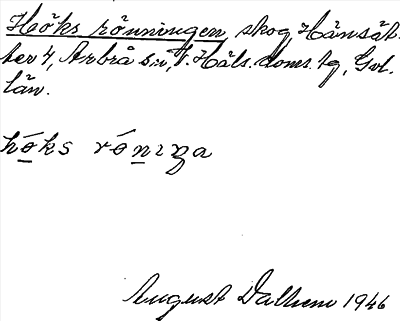 Höks rönningen, skog, Hänsät-
ter 4, Arbrå s:n, V. Häls. doms. tg, Gvl.
län.
höks rónıŋa
August Dalhem 1946